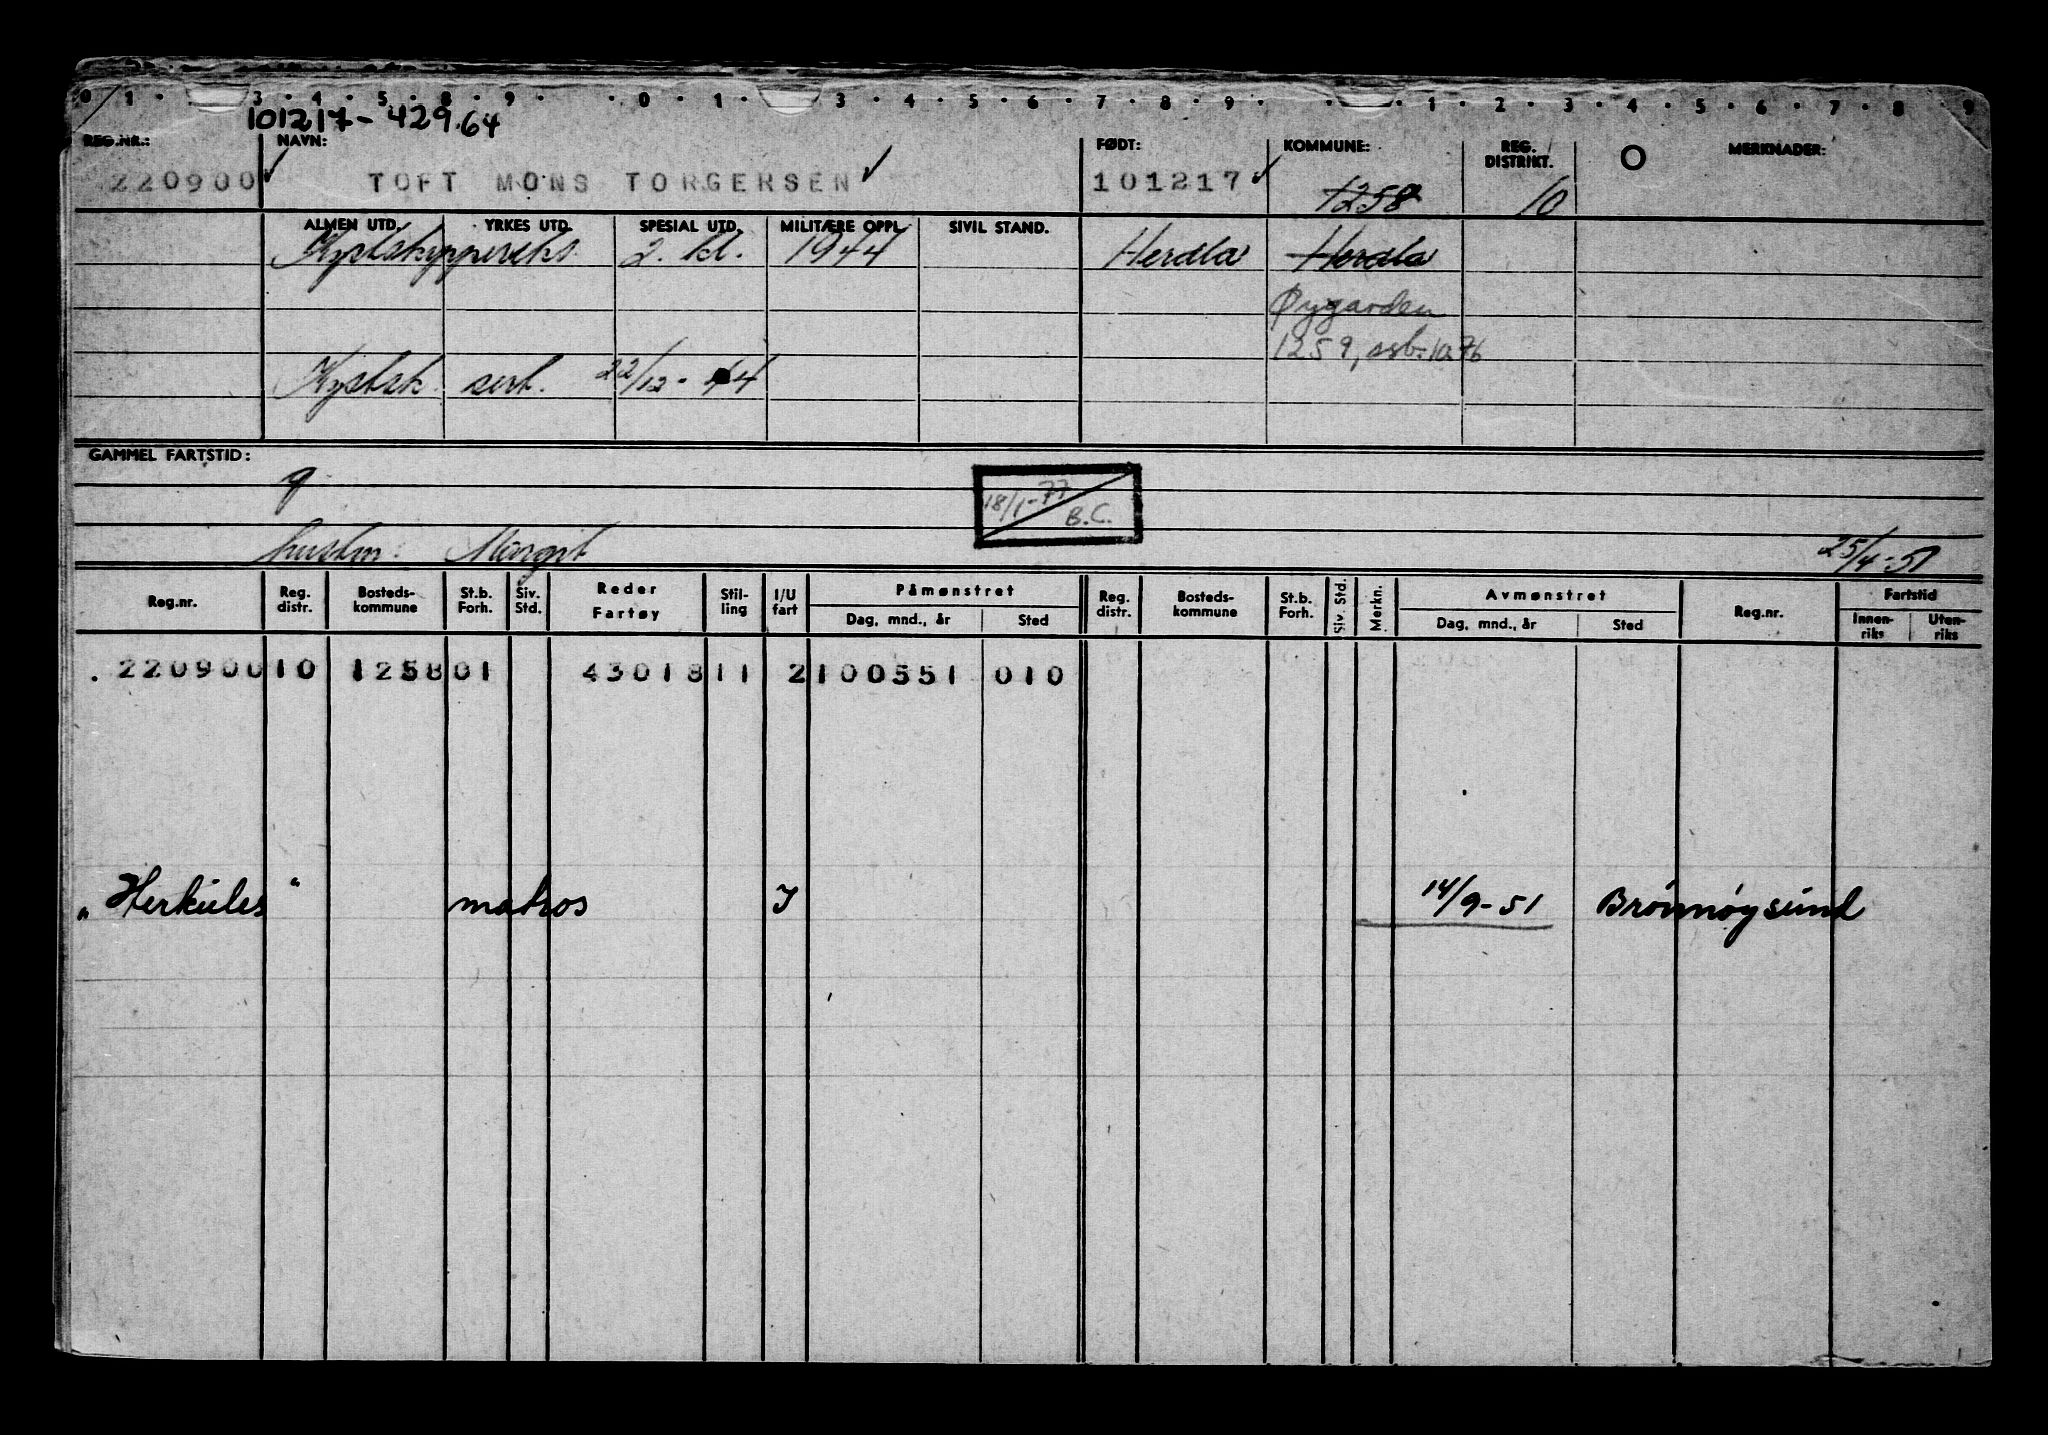 0 1 3 4 5 8 9 0 1 3 4 5 6 7 8 9 1 2 3 4 5 6 7 8 9
101217-429.64
REG.NR.: NAVN: FØDT: KOMMUNE: REG. DISTRIKT. O MERKNADER:
220900 ✓ TOFT MONS TORGERSEN ✓ 101217 ✓ 1258 10
ALMEN UTD. YRKES UTD. SPESIAL UTD. MILITÆRE OPPL. SIVIL STAND.
Kystskippereks. 2. kl. 1944 Herdla Herdla
Øygarden
1259, osb. 10.76
Kystsk. sert. 22/12-44
GAMMEL FARTSTID:
9
18/1-77
B.C.
hustru: Margit 25/4-51
Reg.nr. Reg. distr. Bosteds-kommune St.b. Forh. Siv. Std. Reder Fartøy Stil-ling I/U fart Påmønstret Dag, mnd., år Sted Reg. distr. Bosteds-kommune St.b. Forh. Siv. Std. Merkn. Avmønstret Dag, mnd., år Sted Reg.nr. Fartstid Innen-riks Uten-riks
. 220900 10 1258 01 43018 11 2 100551 010
"Herkules" matros I 14/9-51 Brønnøysund